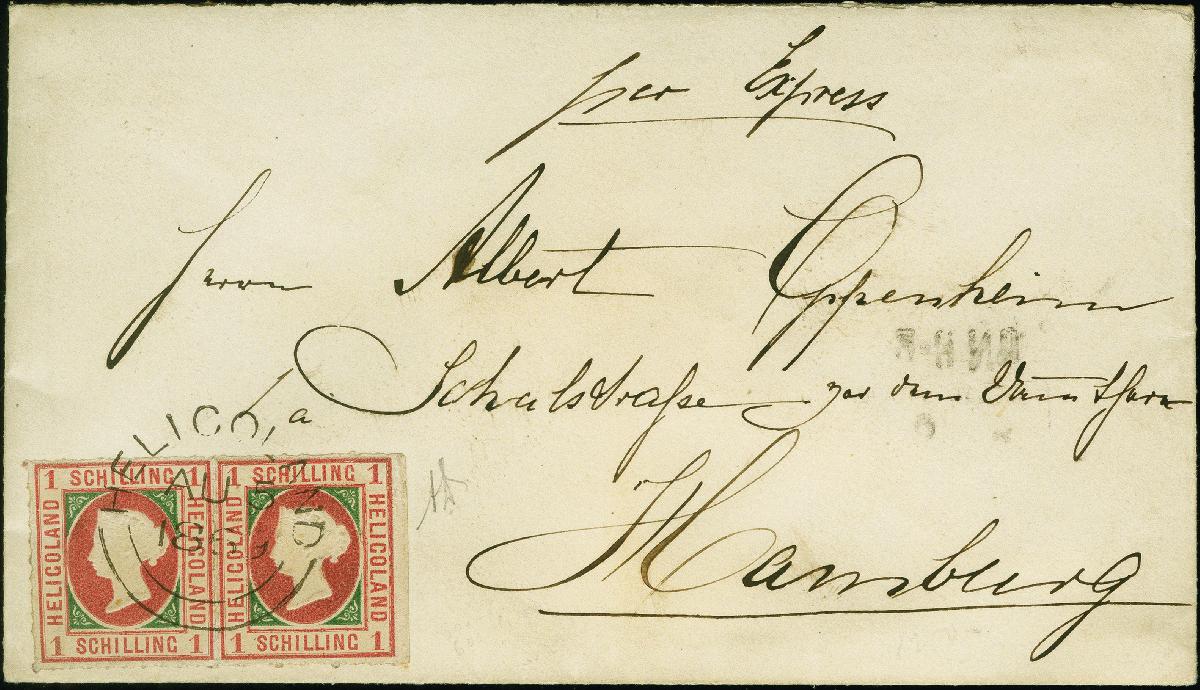 per Express
Herrn Albert Oppenheim
Schulstraße vor dem Dammthore
Hamburg
HELIGOLAND
AU 5
1 SCHILLING 1
HELIGOLAND
HELIGOLAND
1 SCHILLING 1
1 SCHILLING 1
HELIGOLAND
HELIGOLAND
1 SCHILLING 1